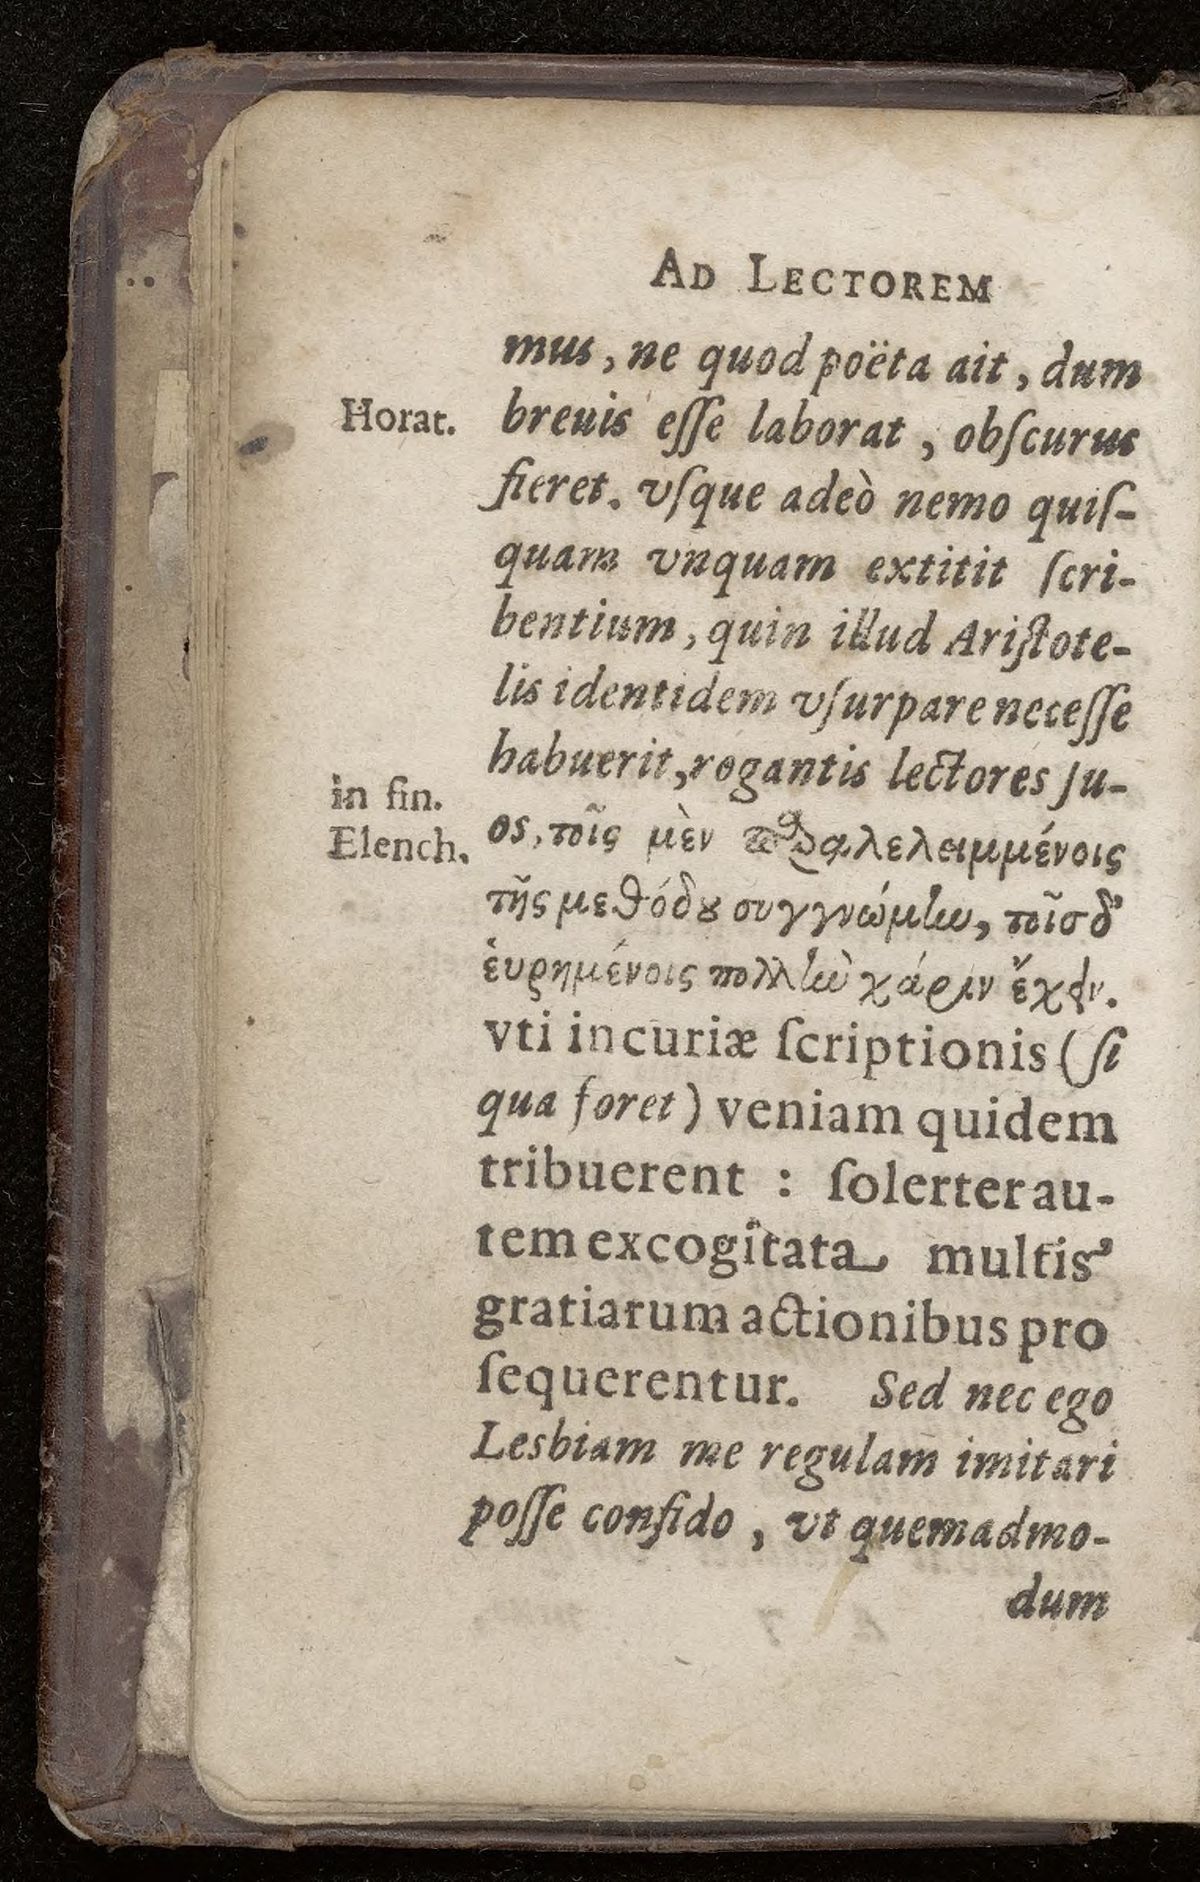 AD LECTOREM
mus, ne quod poëta ait, dum
Horat.
breuis esse laborat, obscurus
fieret. vsque adeò nemo quis-
quam vnquam extitit scri-
bentium, quin illud Aristote-
lis identidem vsurpare necesse
habuerit, rogantis lectores su-
in fin.
Elench.
os, τοῖς μὲν παραλελειμμένοις
τῆς μεθόδου συγγνώμην, τοῖσ δ'
ἑυρημένοις πολλὴν χάριν ἔχειν.
vti incuriæ scriptionis (si
qua foret) veniam quidem
tribuerent : solerter au-
tem excogitata multis
gratiarum actionibus pro
sequerentur. Sed nec ego
Lesbiam me regulam imitari
posse confido, vt quemadmo-
dum